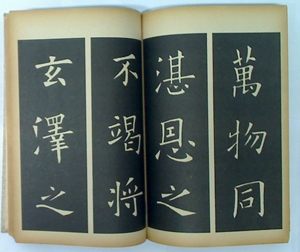 萬物同
湛恩之
不竭将
玄澤之